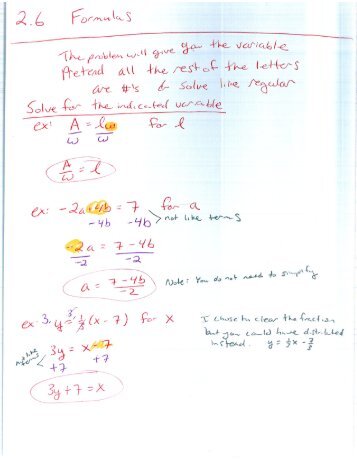 2.6 Formulas
The problem will give you the variable
Pretend all the rest of the letters
are #'s & solve like regular
Solve for the indicated variable
ex: A = lw for l
w w
A/w = l
ex: -2a + 4b = 7 for a
-4b -4b > not like terms
-2a = 7 - 4b
-2 -2
a = 7-4b/-2 Note: You do not need to simplify
ex: 3·y = 3·1/3(x - 7) for x I chose to clear the fraction
but you could have distributed
not like terms 3y = x - 7 instead. y = 1/3x - 7/3
+7 +7
3y + 7 = x